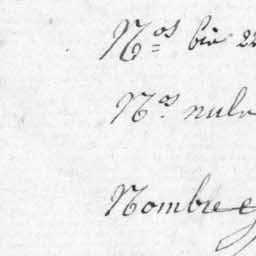 Nos bis 22
Nos nulr
Nombre e